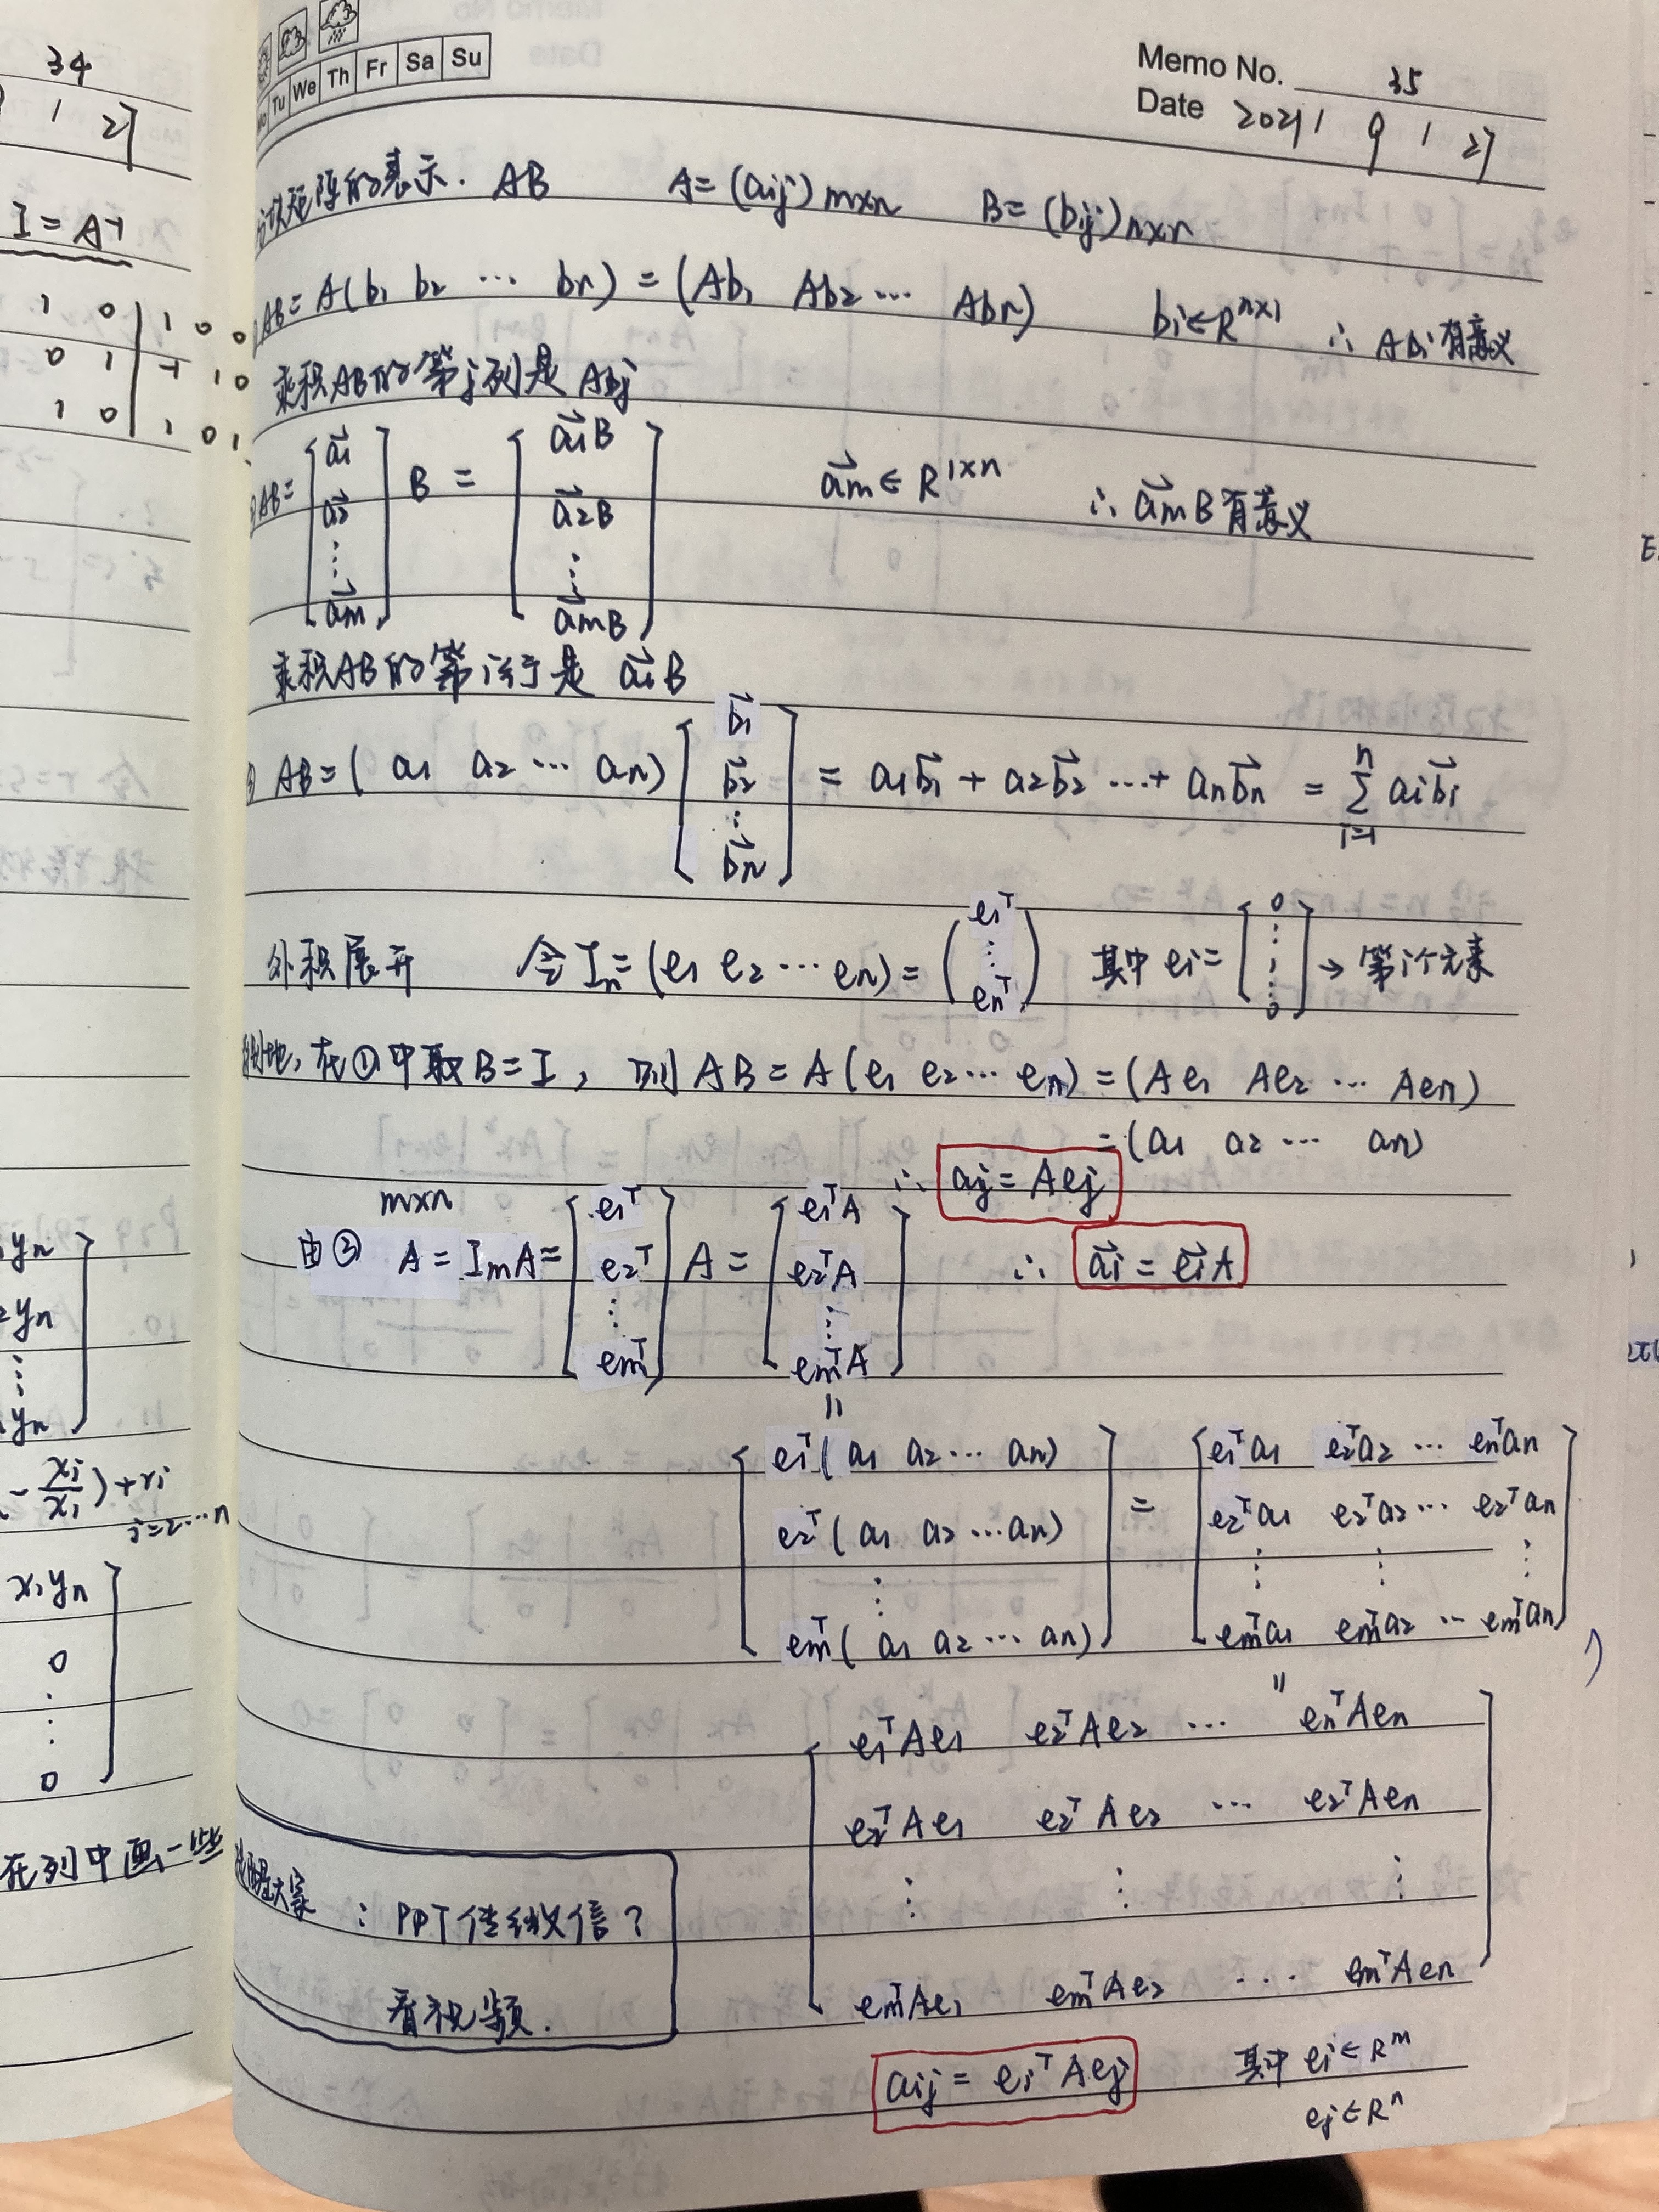 34
1 27
I = A-1
1 0 | 1 0 0
0 1 | -1 1 0
1 0 | 1 0 1
yn
yn
⋮
yn
- xi/x1) + ri
i=2⋯n
x1yn
0
⋮
0
在列中画一些
Tu We Th Fr Sa Su
Memo No. 35
Date 2021 9 1 27
矩阵的表示. AB A=(aij)m×n B=(bij)n×n
AB=A(b1 b2 ⋯ bn) = (Ab1 Ab2 ⋯ Abn) bi∈R^{n×1} ∴ Abi有意义
乘积AB的第j列是 Abj
AB= [a⃗1 a⃗2 ⋮ a⃗m] B = [a⃗1B a⃗2B ⋮ a⃗mB] a⃗m∈R^{1×n} ∴ a⃗mB有意义
乘积AB的第i行是 a⃗iB
AB=( a1 a2 ⋯ an) [b⃗1 b⃗2 ⋮ b⃗n] = a1b⃗1 + a2b⃗2 ⋯+ anb⃗n = ∑_{i=1}^{n} aib⃗i
外积展开 令In=(e1 e2 ⋯ en) = (e1^T ⋮ en^T) 其中 ei= [0 ⋮ ⋮ 0] → 第i个元素
地, 在①中取B=I, 则 AB = A(e1 e2 ⋯ en) = (Ae1 Ae2 ⋯ Aen)
= (a1 a2 ⋯ an)
∴ aj = Aej
m×n
由② A = ImA = [e1^T e2^T ⋮ em^T] A = [e1^TA e2^TA ⋮ em^TA] ∴ a⃗i = e⃗iA
=
[e1^T( a1 a2 ⋯ an) e2^T( a1 a2 ⋯ an) ⋮ em^T( a1 a2 ⋯ an)] = [e1^Ta1 e2^Ta2 ⋯ en^Tan
e2^Ta1 e2^Ta2 ⋯ e2^Tan
⋮ ⋮ ⋮
em^Ta1 em^Ta2 ⋯ em^Tan]
=
[e1^TAe1 e2^TAe2 ⋯ en^TAen
e2^TAe1 e2^TAe2 ⋯ e2^TAen
⋮ ⋮ ⋮
em^TAe1 em^TAe2 ⋯ em^TAen]
大家 : PPT传微信?
看视频.
aij = ei^TAej 其中 ei∈R^m
ej∈R^n